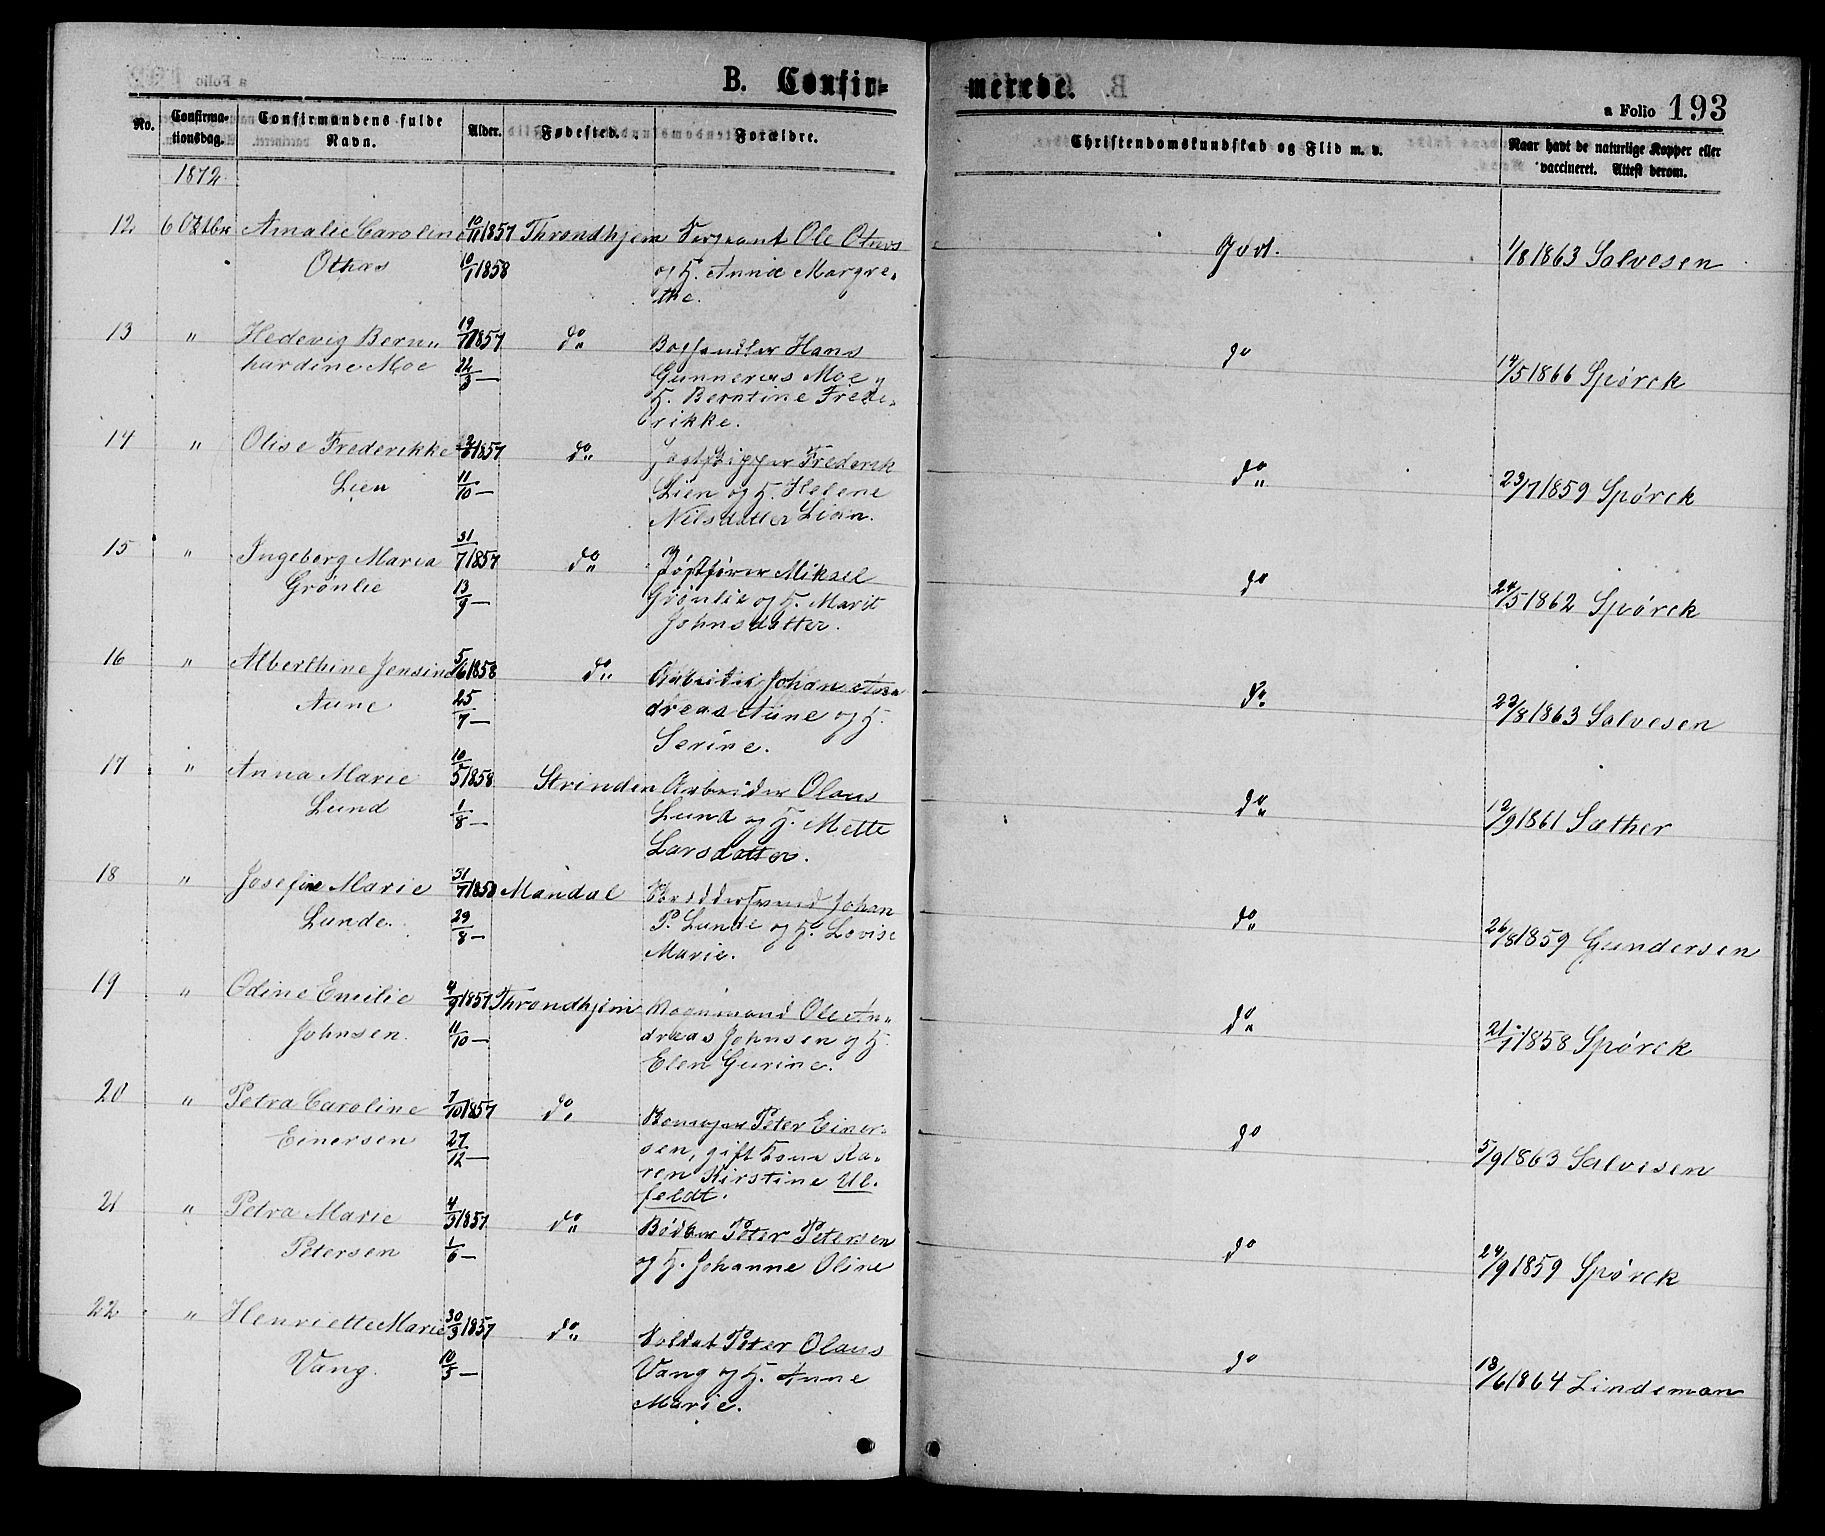 B. Confirmerede.
a Folio 193
No. Confirmationsdag. Confirmandens fulde Navn. Alder. Fødested. Forældre. Christendomskundskab og Flid m. v. Naar havt de naturlige Kopper eller vaccineret. Attest derom.
1872
12 6 Octbr Amalie Caroline 10/11 1857 Throndhjem Sergeant Ole Othns Godt. 1/8 1863 Salvesen
Othns 10/1 1858 og H. Anna Margre-
the.
13 " Hedevig Bern- 19/1 1857 do Boghandler Hans do 14/5 1866 Spørck
hardine Moe 22/3 — Gunnerus Moe og
H. Berntine Frede-
rikke.
14 " Olise Frederikke 1857 do Jagtskipper Frederek do 23/7 1859 Spørck
Lien 11/10 — Lien og H. Helene
Nilsdatter Lien.
15 " Ingeborg Maria 31/7 1857 do Postfører Mikael do 24/5 1862 Spørck
Grønlie 13/9 — Grønlie og H. Marit
Johnsdatter.
16 " Alberthine Jensine 5/6 1858 do Arbeider Johan An- do 23/8 1863 Salvesen
Aune 25/7 — dreas Aune og H.
Serine.
17 " Anna Marie 10/5 1858 Strinden Arbeider Olaus do 12/9 1861 Sæther
Lund 1/8 — Lund og H. Mette
Larsdatter.
18 " Josefine Marie 31/7 1858 Mandal Johan do 26/8 1859 Gundersen
Lunde. 29/8 — P. Lunde og H. Lovise
Marie.
19 " Odine Emilie 4/9 1857 Throndhjem Vognmand Ole An- do 21/1 1858 Spørck
Johnsen. 11/10 — dreas Johnsen og H.
Elen Gurine.
20 " Petra Caroline 7/10 1857 do Peter Einer- do 5/9 1863 Salvesen
Einersen 27/12 — sen, gift Kone Ka-
ren Kirstine Ul-
feldt.
21 " Petra Marie 4/3 1857 do Bødker Peter Petersen do 24/9 1859 Spørck
Petersen 1/6 — og H. Johanne Oline
22 " Henriette Marie 30/3 1857 do Soldat Peter Olaus do 18/6 1864 Lindeman
Vang. 10/5 — Vang og H. Anne
Marie.